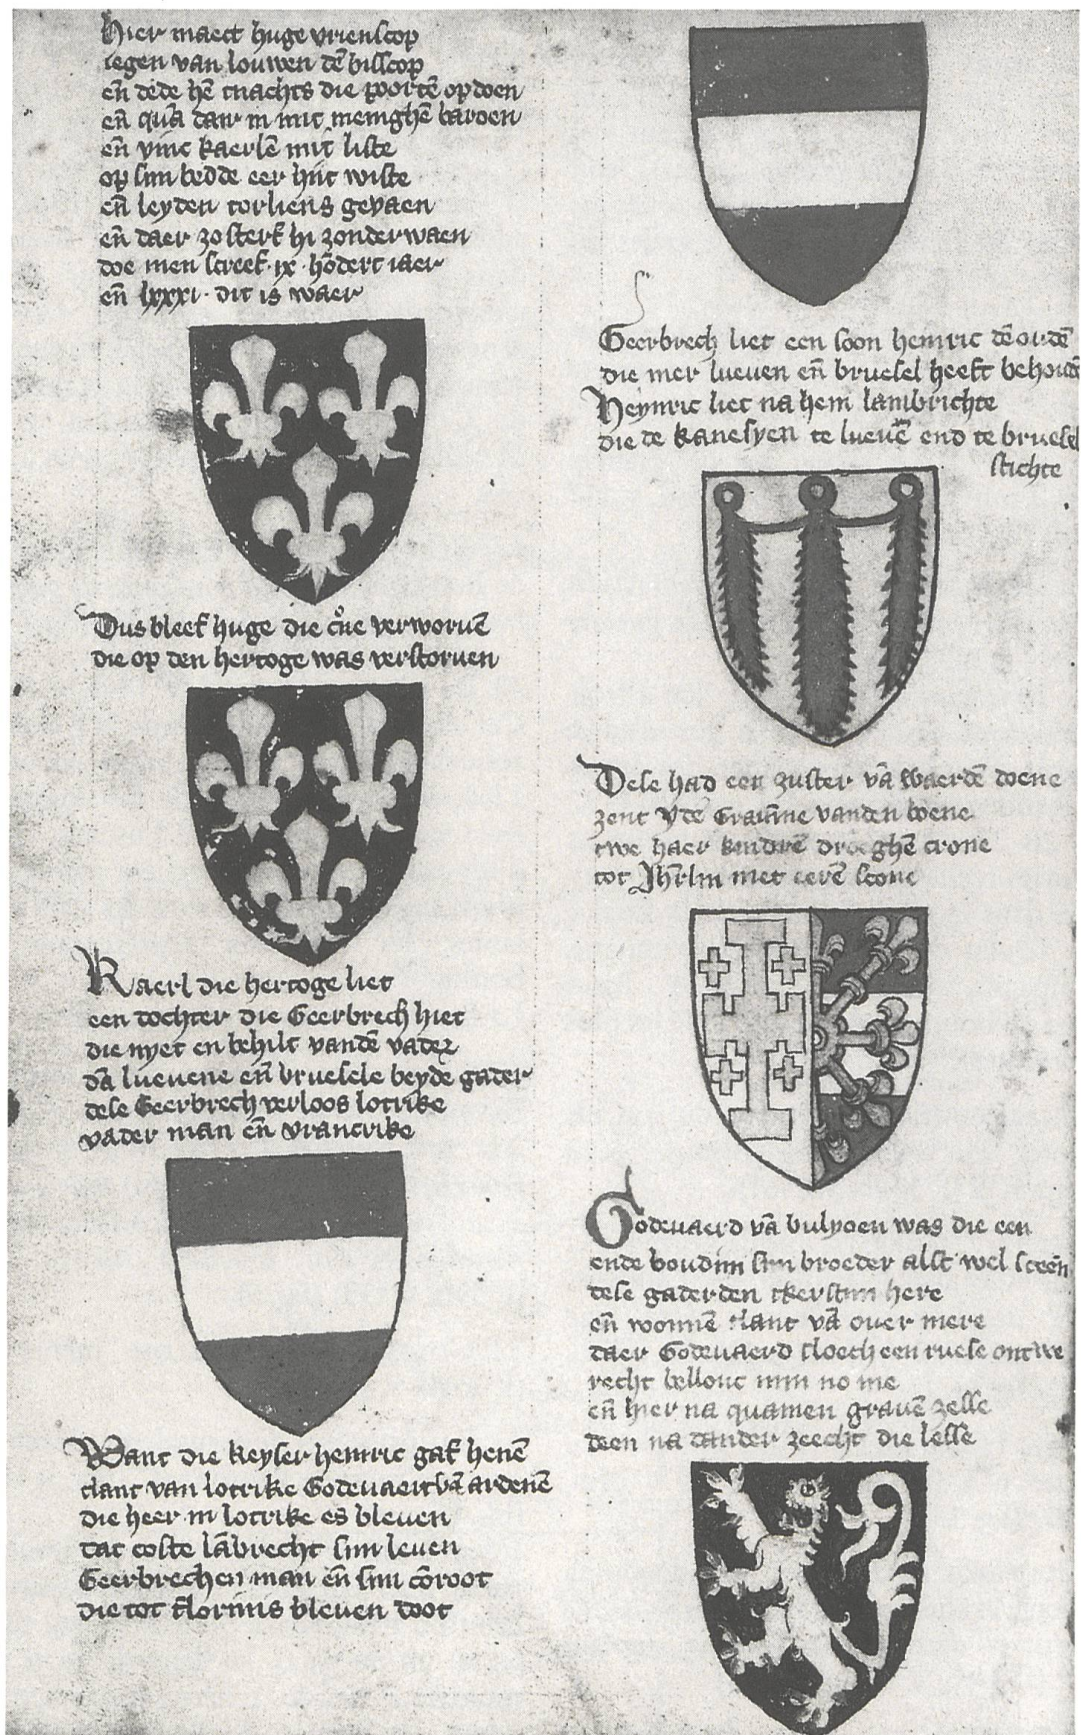 hier maect huge vrienscop
iegen van louwen dē bisscop
eñ dede hē tnachts die poortē opdoen
eñ quā daer in mit menighē baroen
eñ vinc kaerlē mit liste
op sijn bedde eer hijt wiste
eñ leyden torliens gevaen
eñ daer zo sterf hi zonder waen
doe men screef · ix · hōdert iaer
eñ lxxxi · dit is waer
Dus bleef huge die cͦne verworuē
die op den hertoge was verstorven
Kaerl die hertoge liet
een dochter die Geerbrech hiet
die nyet en behilt vandē vader
dā lueuene eñ bruesele beyde gader
dese Geerbrech verloos lotrike
vader man eñ vrancrike
Want die keyser heinric gaf henē
tlant van lotrike Godeuaert vā ardenē
die heer in lotrike es bleven
tat coste lābrecht sijn leven
Geerbrechen man eñ sijn cōroot
die tot florinis bleven doot
Geerbrech liet een soon heinric dē ordē
die mer lueven eñ bruesel heeft behoudē
Heynric liet na hem lambrichte
die de kanesyen te lueuē end te bruesel
stichte
Dese had een zuster vā waerdē doene
zent yde Grauīne vanden boene
twe haer kindrē droeghē crone
tot Jhrlm met eerē scone
Godeuaerd vā bulyoen was die een
ende boudijn sijn broeder alst wel sceen
dese gaderden tkerstijn here
eñ wonnē tlant vā ouer mere
daer Godeuaerd sloech een ruese ontwe
recht bellouc min no me
eñ hier na quamen grauē zelle
deen na dander zeecht die lesse